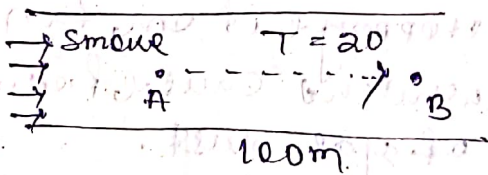 Smoke T = 20
A B
100m